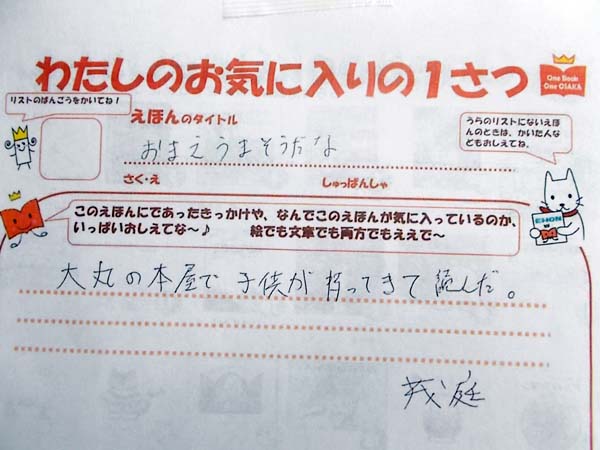 わたしのお気に入りの1さつ
One Book
One OSAKA
リストのばんごうをかいてね!
えほんのタイトル
おまえうまそうだな
うらのリストにないえほ
んのときは、かいたんな
どもおしえてね。
さく・え
しゅっぱんしゃ
このえほんにであったきっかけや、なんでこのえほんが気に入っているのか、
いっぱいおしえてな〜♪ 絵でも文章でも両方でもええで〜
EHON
大丸の本屋で子供が持ってきて読んだ。
茂庭